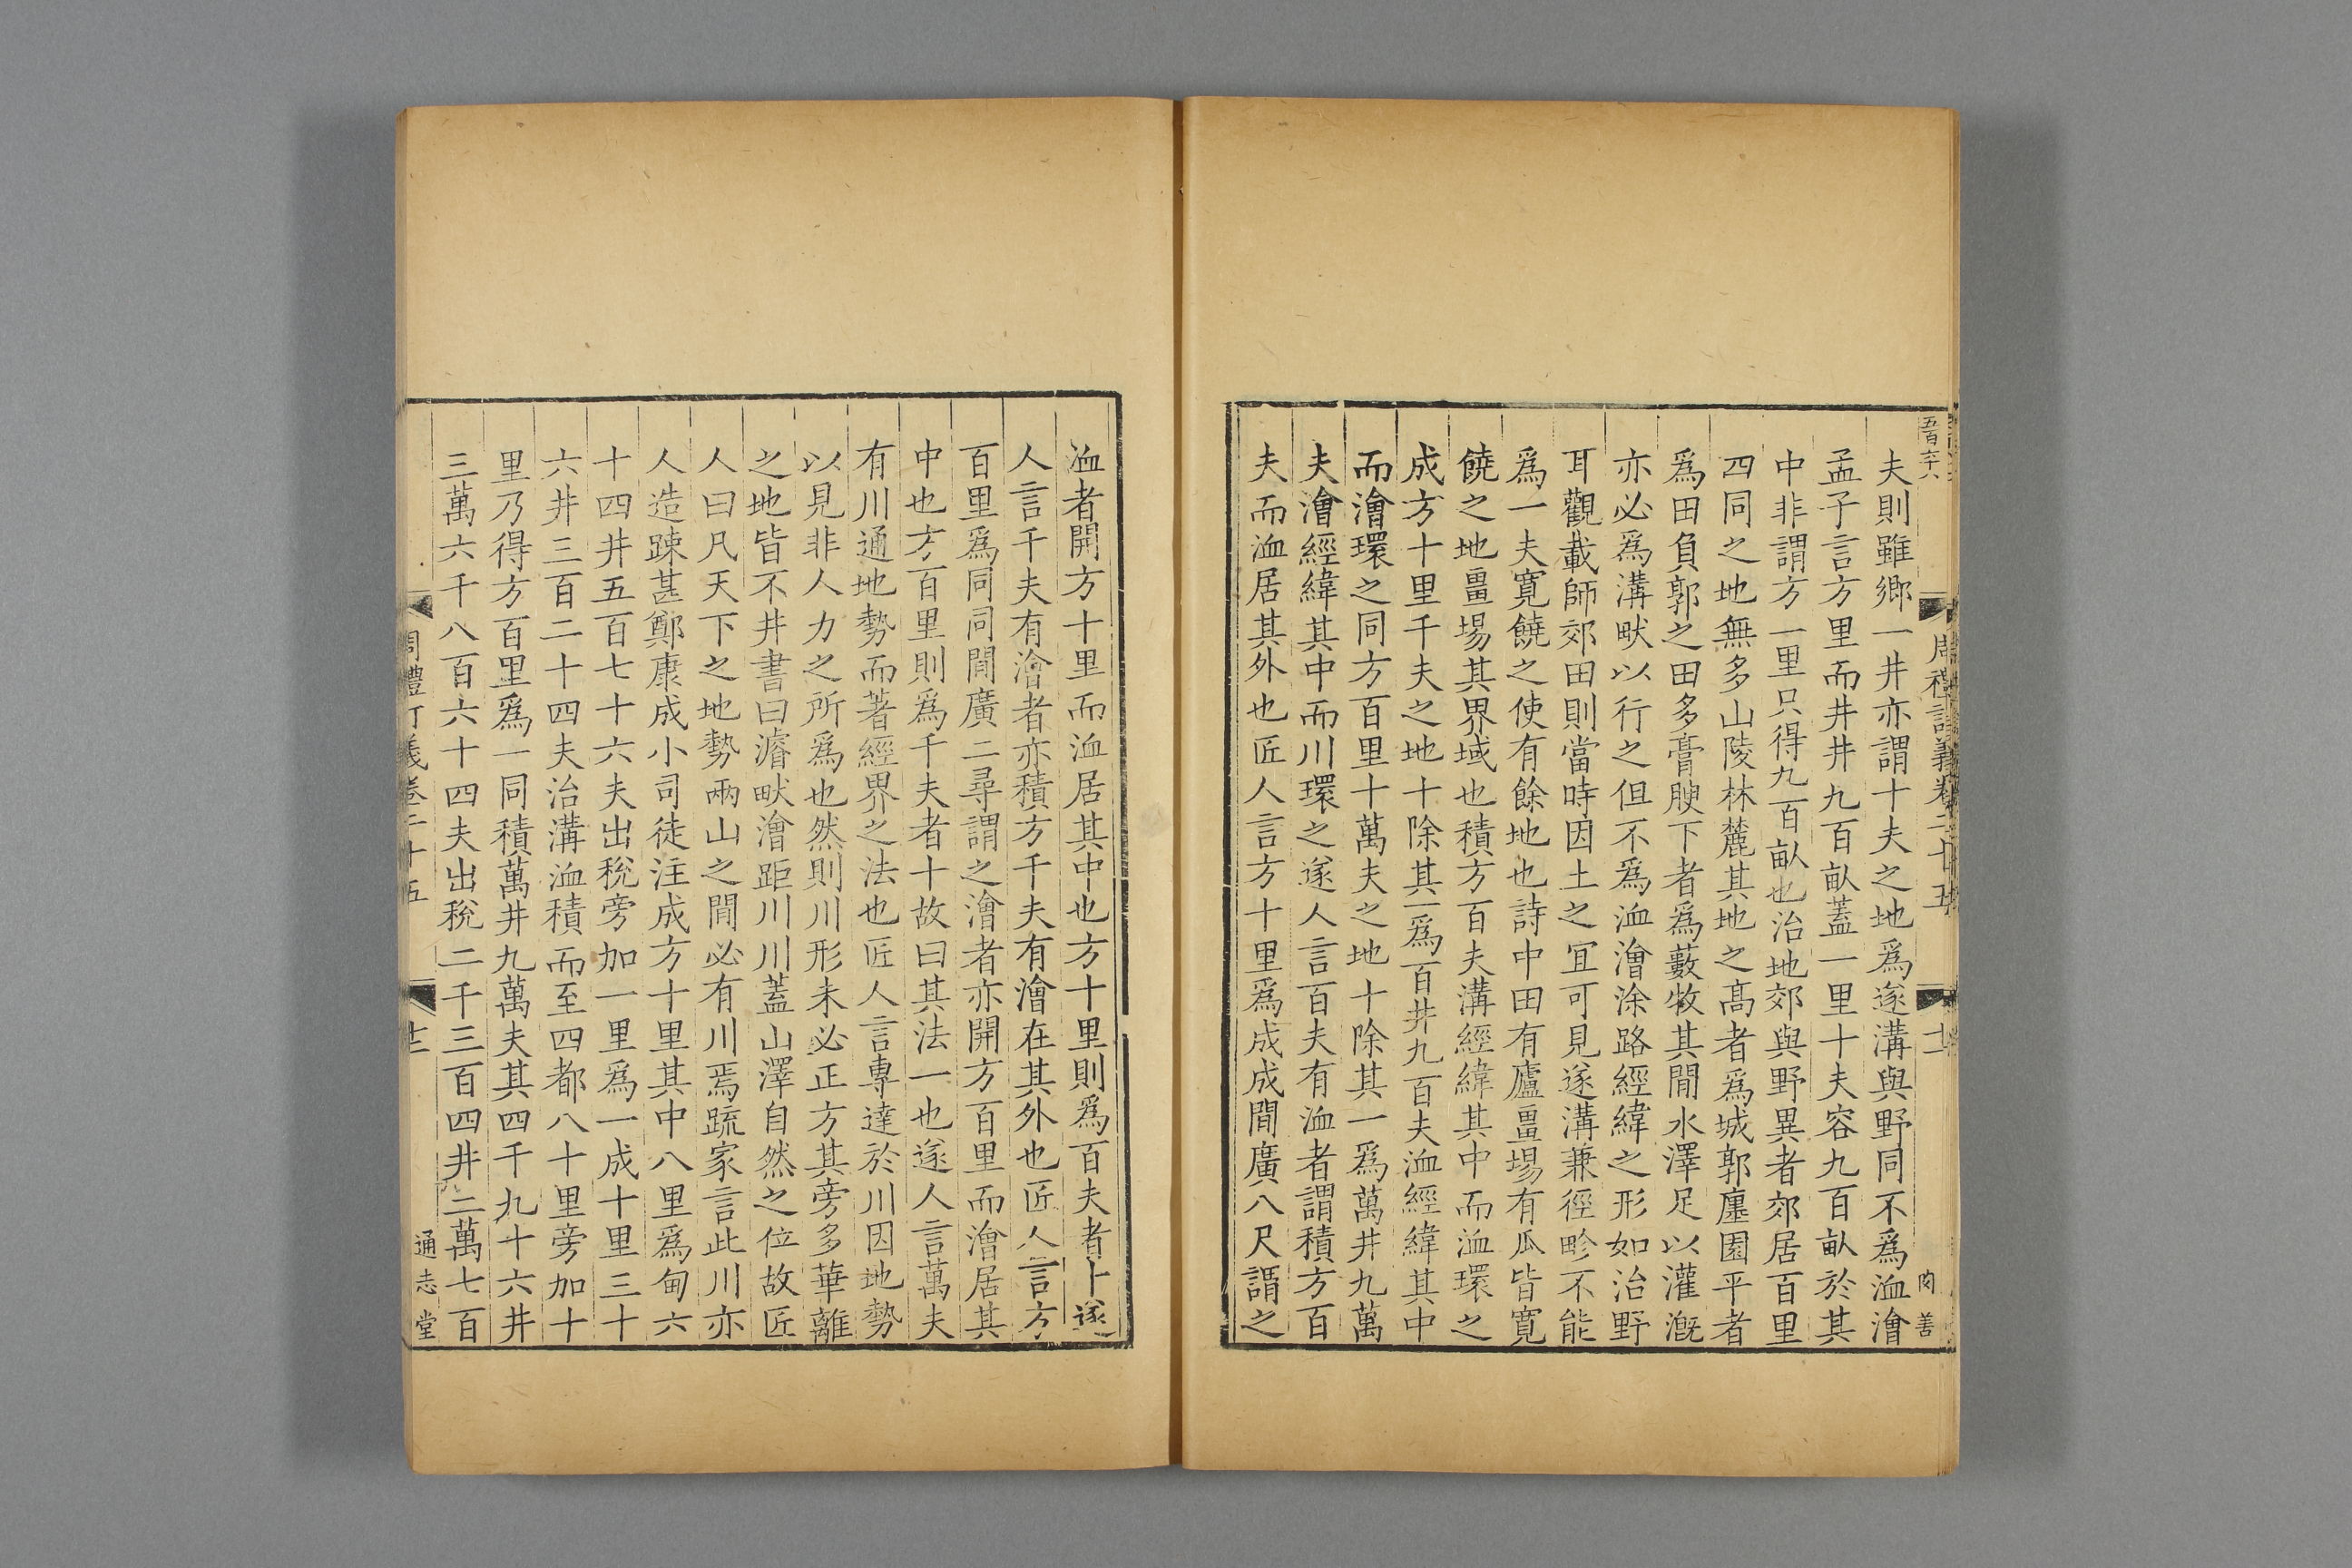 五百六十八
周禮訂義卷二十五
十二
夫則雖鄉一井亦謂十夫之地爲遂溝與野同不爲洫澮
孟子言方里而井井九百畝蓋一里十夫容九百畝於其
中非謂方一里只得九百畝也治地郊與野異者郊居百里
四同之地無多山陵林麓其地之髙者爲城郭廛園平者
爲田負郭之田多膏腴下者爲藪牧其間水澤足以灌漑
亦必爲溝畎以行之但不爲洫澮涂路經緯之形如治野
耳觀載師郊田則當時因土之宜可見遂溝兼徑畛不能
爲一夫寛饒之使有餘地也詩中田有廬畺埸有瓜皆寛
饒之地畺埸其界域也積方百夫溝經緯其中而洫環之
成方十里千夫之地十除其一爲百井九百夫洫經緯其中
而澮環之同方百里十萬夫之地十除其一爲萬井九萬
夫澮經緯其中而川環之遂人言百夫有洫者謂積方百
夫而洫居其外也匠人言方十里爲成成間廣八尺謂之
洫者開方十里而洫居其中也方十里則爲百夫者十遂
人言千夫有澮者亦積方千夫有澮在其外也匠人言方
百里爲同同間廣二尋謂之澮者亦開方百里而澮居其
中也方百里則爲千夫者十故曰其法一也遂人言萬夫
有川通地勢而著經界之法也匠人言專達於川因地勢
以見非人力之所爲也然則川形未必正方其旁多華離
之地皆不井書曰濬畎澮距川川蓋山澤自然之位故匠
人曰凡天下之地勢兩山之間必有川焉疏家言此川亦
人造踈甚鄭康成小司徒注成方十里其中八里爲甸六
十四井五百七十六夫出稅旁加一里爲一成十里三十
六井三百二十四夫治溝洫積而至四都八十里旁加十
里乃得方百里爲一同積萬井九萬夫其四千九十六井
三萬六千八百六十四夫出稅二千三百四井二萬七百
周禮訂義卷二十五
十二
通志堂